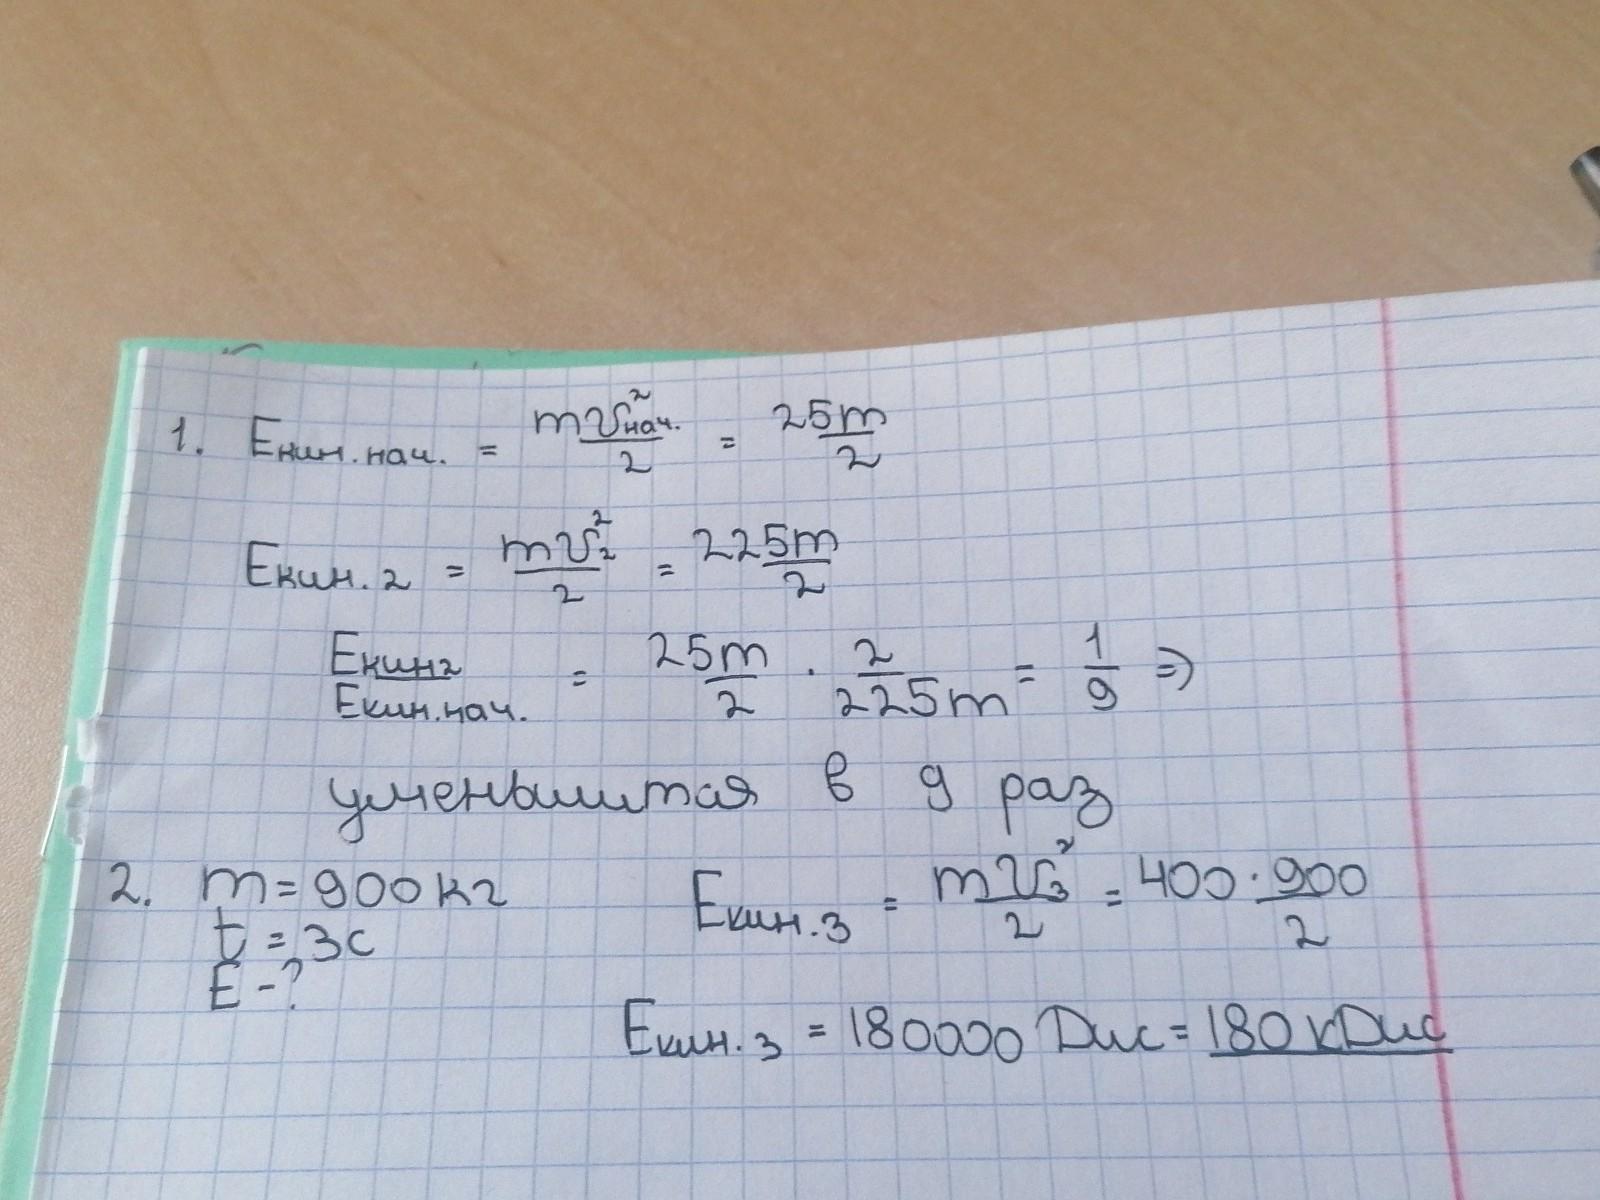 1. Eкин.нач. = mv²нач./2 = 25m/2
Eкин.2 = mv₂²/2 = 225m/2
Eкин2/Eкин.нач. = 25m/2 · 2/225m = 1/9 ⇒
уменьшится в 9 раз
2. m = 900 кг
t = 3с
E - ?
Eкин.3 = mv₃²/2 = 400·900/2
Eкин.3 = 180000 Дж = 180 кДж